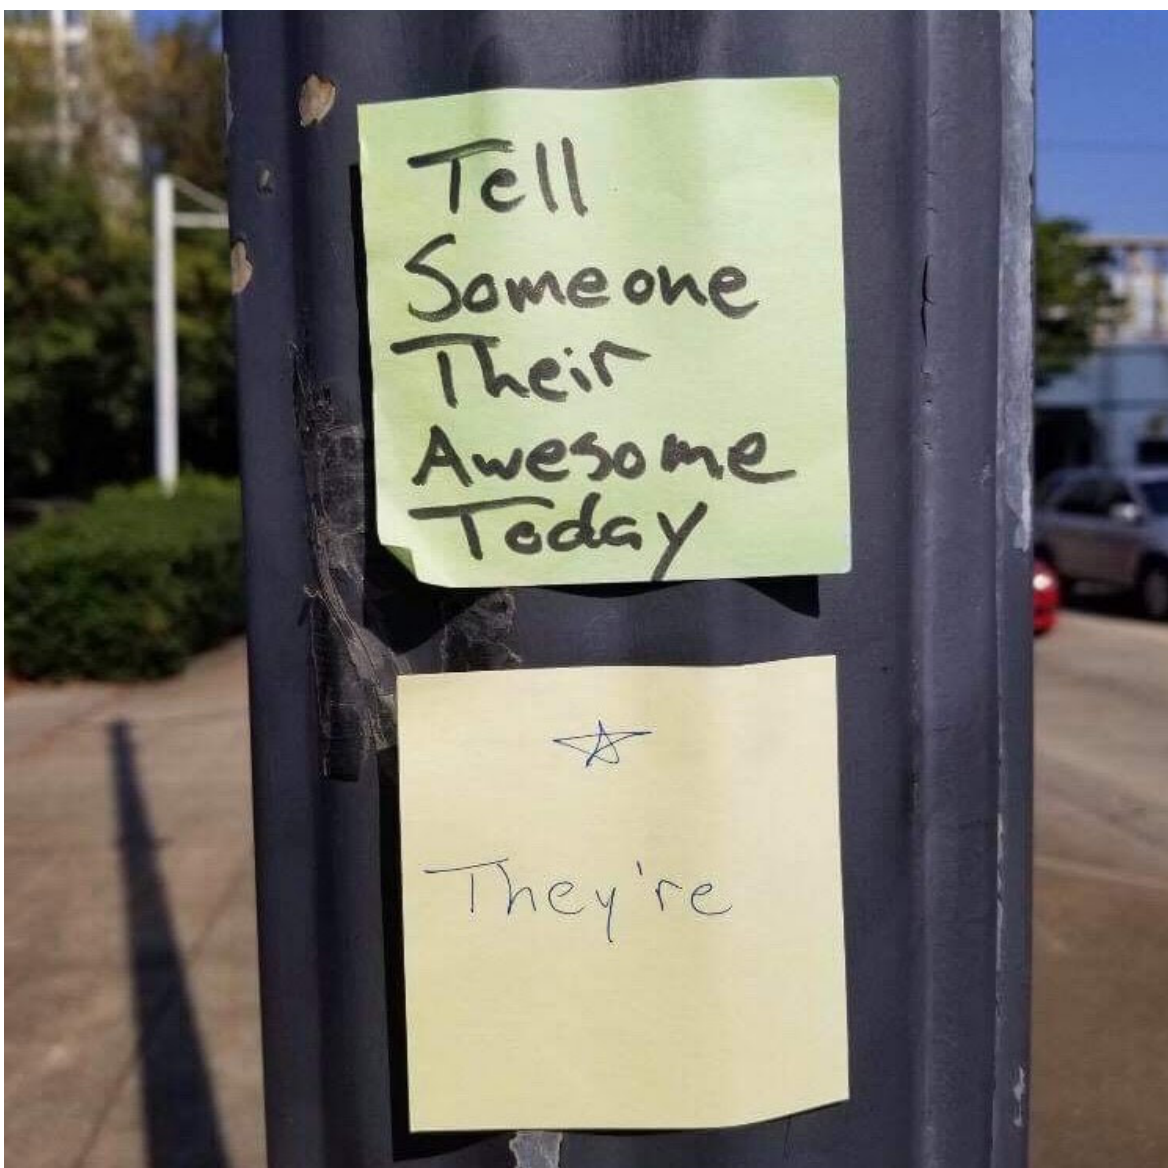 Tell
Someone
Their
Awesome
Today
They're